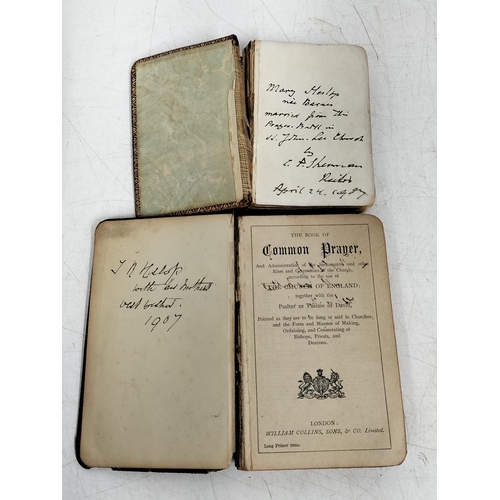 Mary Heslop
née Barnes
married from this
Prayer-Book in
St. John Lee Church
by
C. A. Sherman
April 24.
T R Heslop
with his Mother's
best wishes.
1907
THE BOOK OF
Common Prayer,
And Administration of the Sacraments and other
Rites and Ceremonies of the Church,
according to the use of
THE CHURCH OF ENGLAND;
together with the
Psalter or Psalms of David,
Pointed as they are to be sung or said in Churches;
and the Form and Manner of Making,
Ordaining, and Consecrating of
Bishops, Priests, and
Deacons.
LONDON:
WILLIAM COLLINS, SONS, & CO. Limited.
Long Primer 24mo.